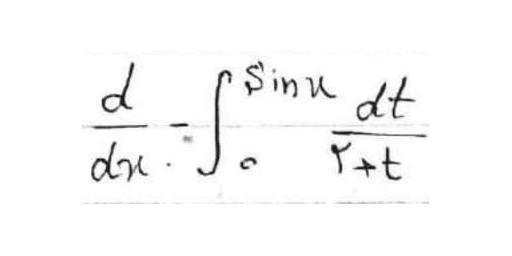 d/dx ∫₀^{Sinx} dt/(۲+t)